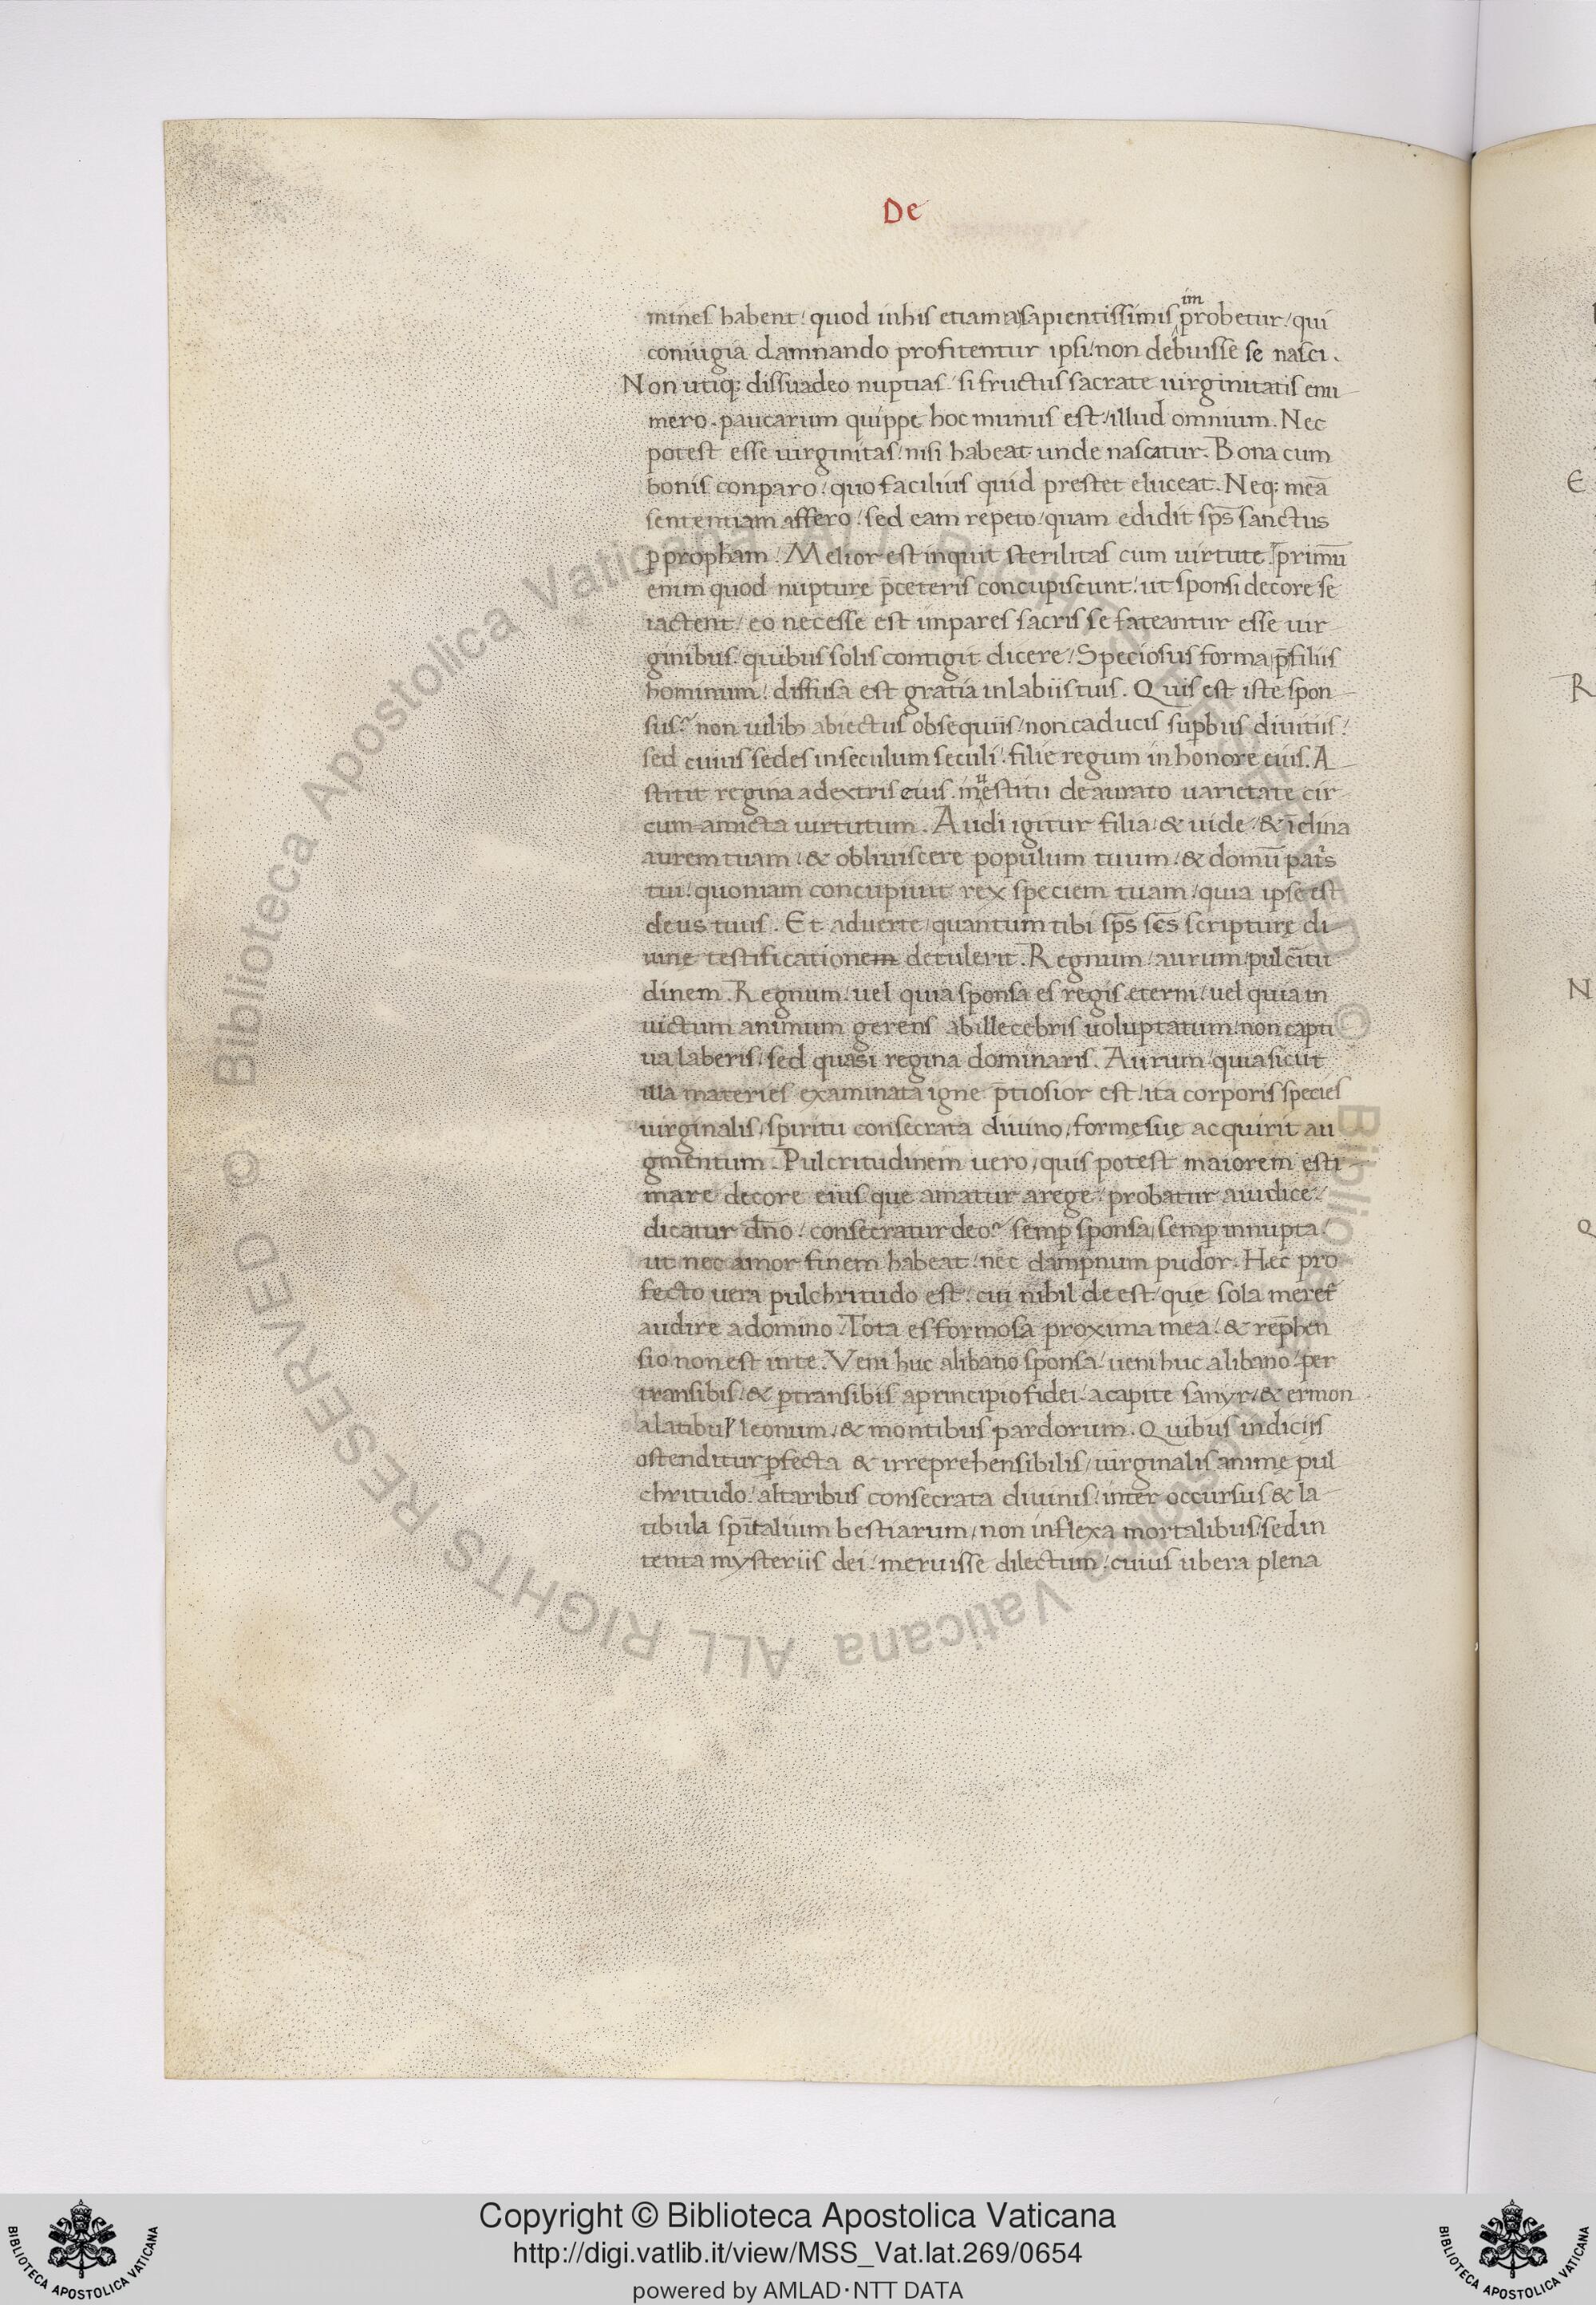 De
mines habent / quod inhis etiam a sapientissimis improbetur / qui
coniugia damnando profitentur ipsi / non debuisse se nasci .
Non utiq; dissuadeo nuptias / si fructus sacrate uirginitatis enu
mero . paucarum quippe hoc munus est / illud omnium . Nec
potest esse uirginitas / nisi habeat unde nascatur . Bona cum
bonis conparo / quo facilius quid prestet eluceat . Neq; meā
sententiam affero / sed eam repeto / quam edidit sp̄s sanctus
ꝑ propham . Melior est inquit sterilitas cum uirtute . primū
enim quod nupture p̄ceteris concupiscunt / ut sponsi decore se
iactent / eo necesse est impares sacris se fateantur esse uir
ginibus . quibus solis contigit dicere / Speciosus forma p̄ filiis
hominum / diffusa est gratia inlabiis tuis . Quis est iste spon
sus? non uilib; abiectus obsequiis / non caducis suꝑbus diuitiis /
sed cuius sedes in seculum seculi / filie regum in honore eius . A
stitit regina adextris eius . in uestitu deaurato uarietate cir
cum amicta uirtutum . Audi igitur filia / & uide / & īclina
aurem tuam / & obliuiscere populum tuum / & domū patis
tui / quoniam concupiuit rex speciem tuam / quia ipse est
deus tuus . Et aduerte / quantum tibi sp̄s sc̄s scripturę di
uine testificationem detulerit . Regnum / aurum / pulcitu
dinem . Regnum / uel quia sponsa es regis eterni / uel quia in
uictum animum gerens abillecebris uoluptatum / non capti
ua laberis / sed quasi regina dominaris . Aurum / quia sicut
illa materies examinata igne p̄tiosior est / ita corporis species
uirginalis / spiritu consecrata diuino / formę suę acquirit au
gmentum . Pulcritudinem uero / quis potest maiorem esti
mare decore eius que amatur arege / probatur aiudice /
dicatur dn̄o / consecratur deo? semꝑ sponsa / semꝑ innupta /
ut nec amor finem habeat / nec dampnum pudor . Hec pro
fecto uera pulchritudo est / cui nihil de est / que sola meret̄
audire adomino / Tota es formosa proxima mea / & rep̄hen
sio non est inte . Veni huc alibano sponsa / ueni huc alibano / per
transibis / & ꝑtransibis aprincipio fidei . acapite sanyr / & ermon
alatibul leonum / & montibus pardorum . Quibus indiciis
ostenditur ꝑfecta & irreprehensibilis / uirginalis animę pul
chritudo / altaribus consecrata diuinis / inter occursus & la
tibula spīt̄alium bestiarum / non inflexa mortalibus / sed in
tenta mysteriis dei / meruisse dilectum / cuius ubera plena
E
R
N
Q
© Biblioteca Apostolica Vaticana ALL RIGHTS RESERVED © Biblioteca Apostolica Vaticana ALL RIGHTS RESERVED
Copyright © Biblioteca Apostolica Vaticana
http://digi.vatlib.it/view/MSS_Vat.lat.269/0654
powered by AMLAD·NTT DATA
BIBLIOTECA APOSTOLICA VATICANA
BIBLIOTECA APOSTOLICA VATICANA